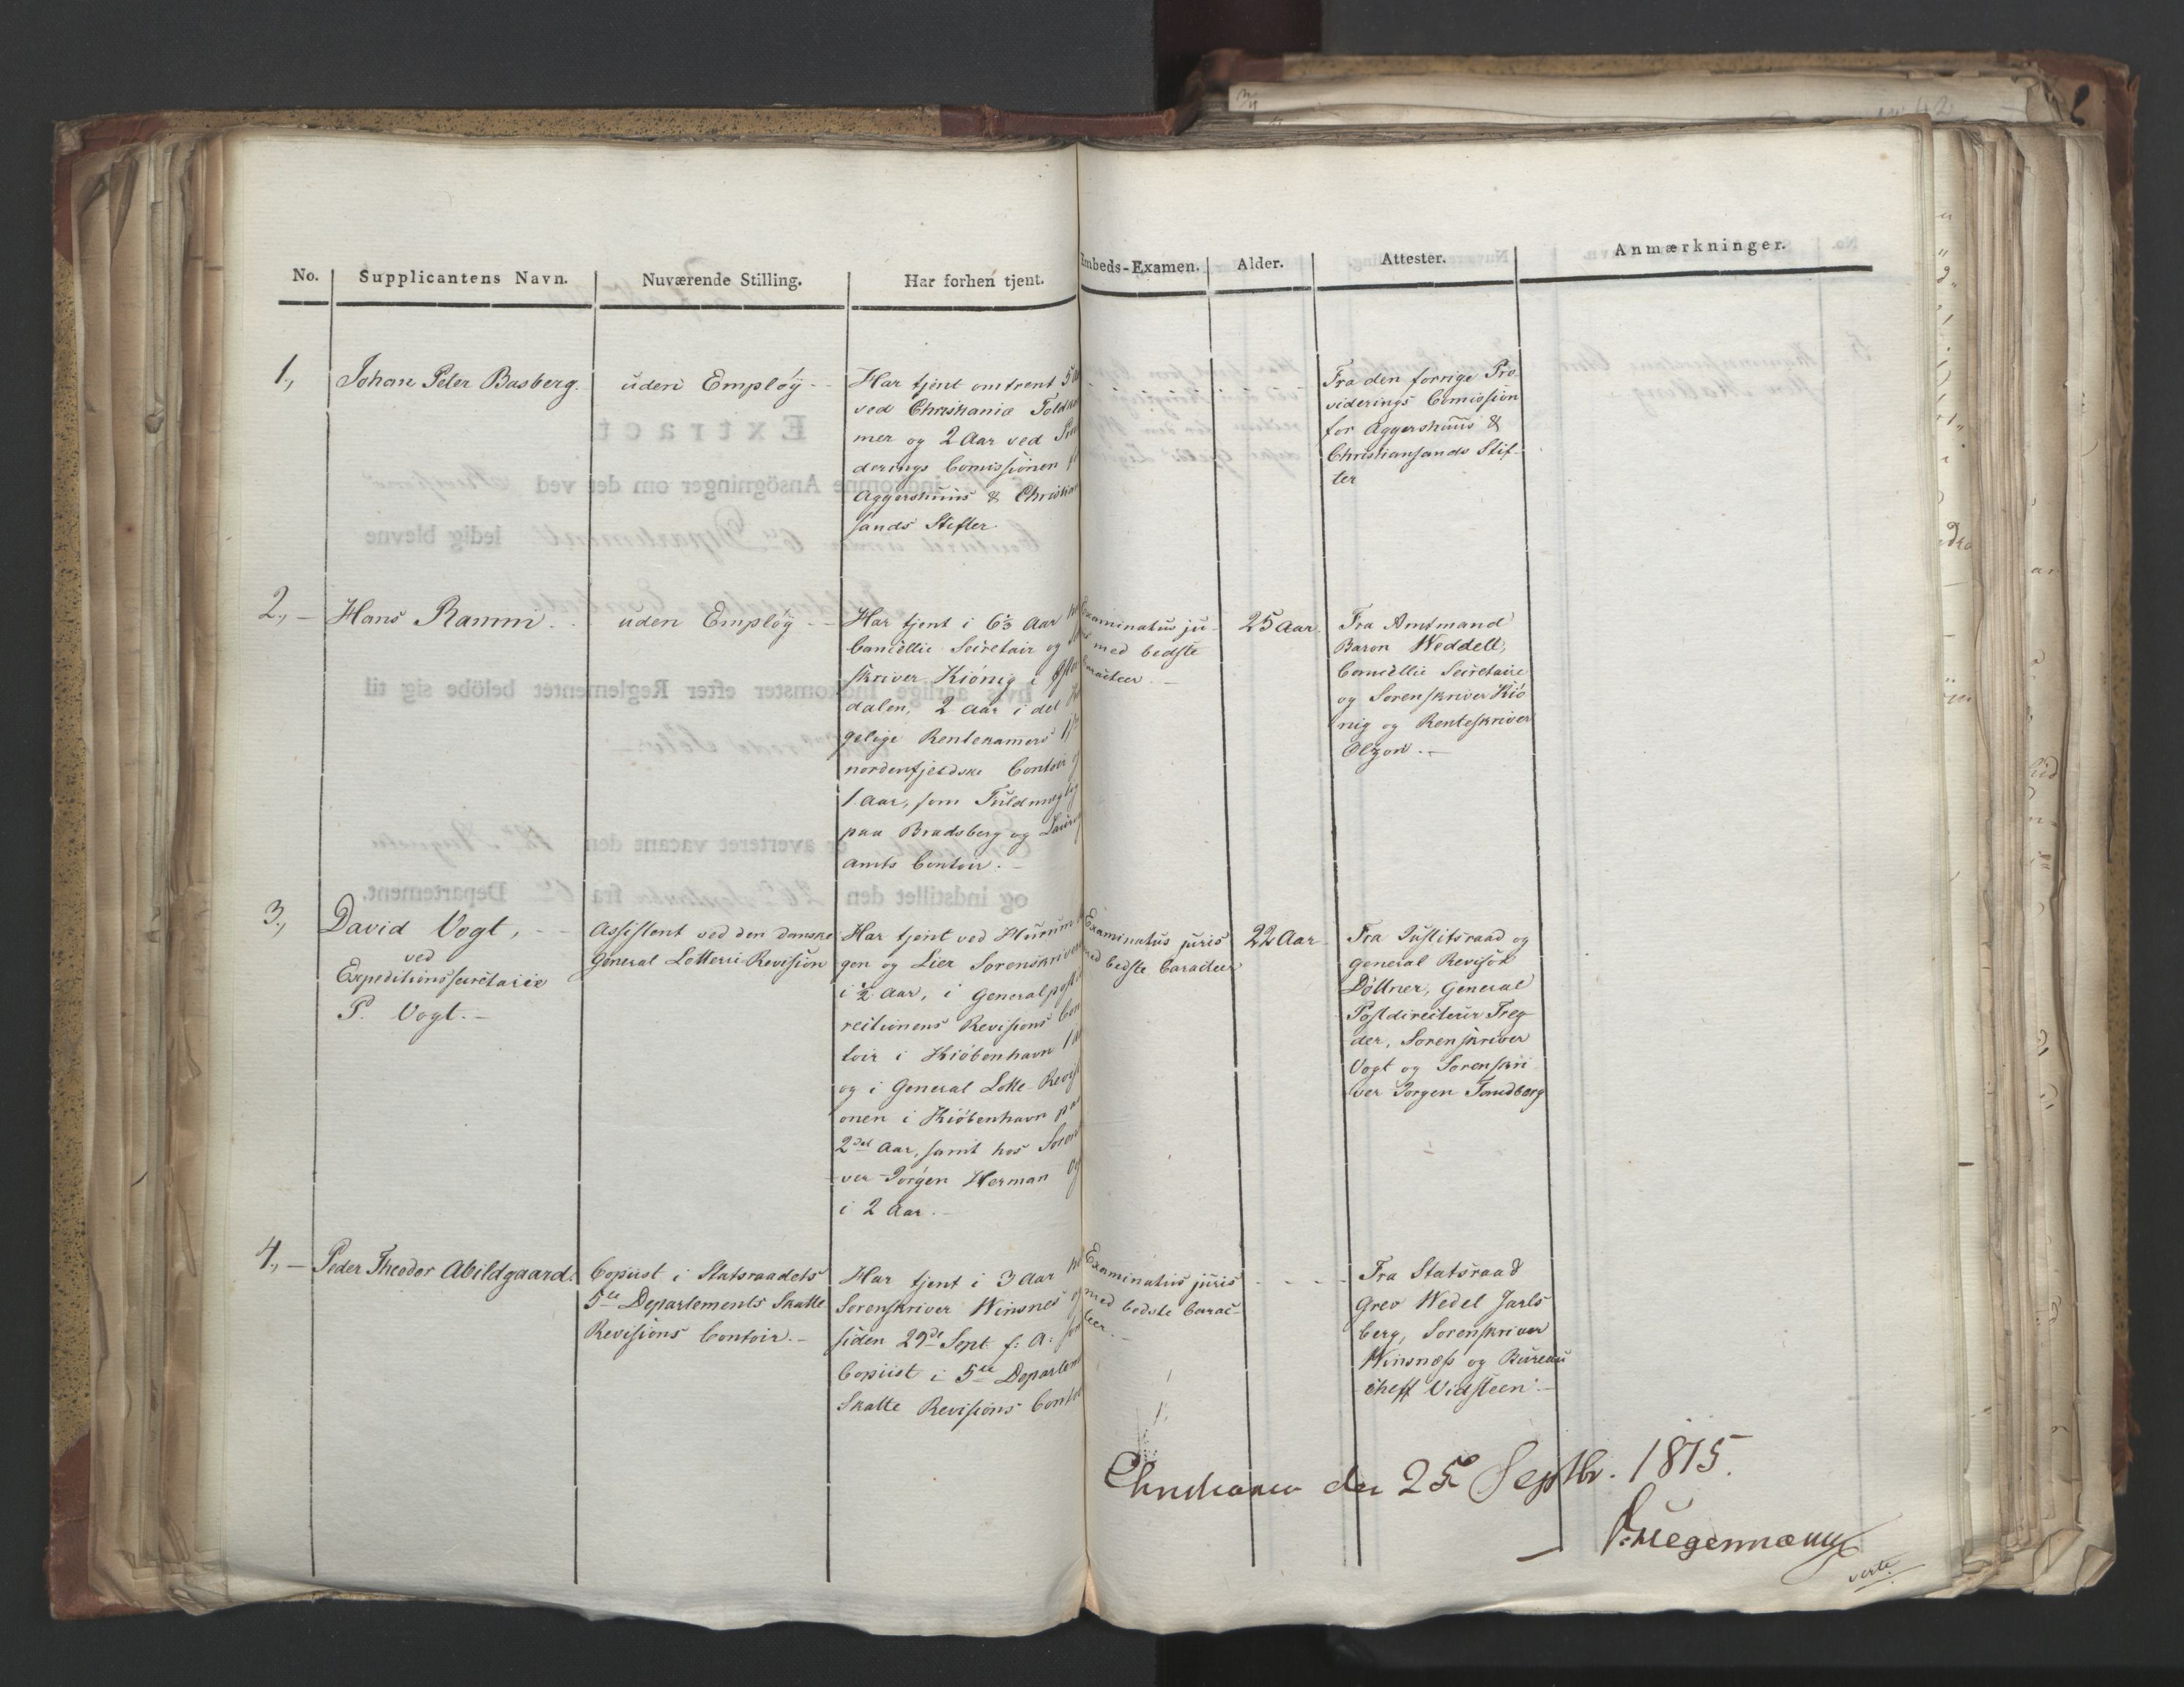 No.
Supplicantens Navn.
Nuværende Stilling.
Har forhen tjent.
Embeds-Examen.
Alder.
Attester.
Anmærkninger.
1.,
Johan Peter Basberg.
uden Emploÿ
Har tjent omtrent 5
ved Christiania Told
mer og 2 Aar ved
derings Comissionen
Aggershuus & Christian
sands Stifter.
Fra den forrige Pro
viderings Comission
for Aggershuus &
Christiansands Stif-
ter
2., -
Hans Ramm.
uden Emploÿ
Har tjent i 6⅔ Aar
Cancellie Secretair og
skriver Kiönig i
dalen, 2 Aar i det
gelige Rentekamers
nordenfjeldske Contoir
1 Aar, som Fuldmægtig
paa Bradsberg og
Amts Contoir. -
Examinatus ju-
med bedste
Caracteer. -
25 Aar.
Fra Amtmand
Baron Weddell,
Cancellie Secretaire
og Sorenskriver Kiö
nig og Renteskriver
Olzon. -
3.,
David Vogt,
ved
Expeditionssecretaire
P. Vogt. -
Assistent ved den danske
General Lotterie-Revision
Har tjent ved Hurum
gen og Lier Sorenskriver
i ½ Aar, i Generalpostdi
rectionens Revisions Con
toir i Kiöbenhavn 1
og i General Lotte-Revisi
onen i Kiöbenhavn paa
2det Aar, samt hos Soren
ver Jörgen Herman
i 2 Aar. -
Examinatus juris
med bedste Caracteer
22 Aar
Fra Justitsraad og
General Revisor
Döllner, General
Postdirecteur Treg
der, Sorenskriver
Vogt og Sorenskri
ver Jörgen Tandberg
4., -
Peder Theodor Abildgaard.
Copiist i Statsraadets
5te Departements Skatte
Revisions Contoir. -
Har tjent i 3 Aar
Sorenskriver Winsnes
siden 29de Sept. f: A: som
Copiist i 5te Departem
Skatte Revisions Conto
Examinatus juris
med bedste Carac-
teer. -
Fra Statsraad
Grev Wedel Jarls
berg, Sorenskriver
Winsnæs og Bureau
cheff Vidsteen. -
Christiania den 25de Septbr. 1815.
verte